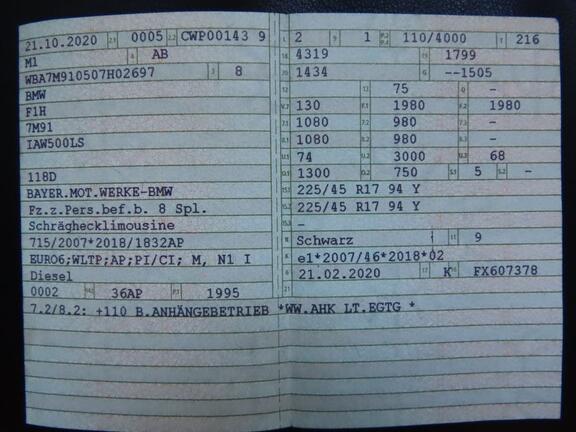 21.10.2020 2.1 0005 2.2 CWP00143 9
M1 4 AB
WBA7M910507H02697 3 8
BMW
F1H
7M91
IAW500LS
118D
BAYER.MOT.WERKE-BMW
Fz.z.Pers.bef.b. 8 Spl.
Schräghecklimousine
715/2007*2018/1832AP
EURO6;WLTP;AP;PI/CI; M, N1 I
Diesel
0002 14.1 36AP P.1 1995
7.2/8.2: +110 B.ANHÄNGEBETRIEB *WW.AHK LT.EGTG *
L 2 9 1 P.2 P.4 110/4000 T 216
18 4319 19 1799
20 1434 G --1505
12 - 13 75 Q -
V.7 130 F.1 1980 F.2 1980
7.1 1080 7.2 980 7.3 -
8.1 1080 8.2 980 8.3 -
U.1 74 U.2 3000 U.3 68
O.1 1300 O.2 750 S.1 5 S.2 -
15.1 225/45 R17 94 Y
15.2 225/45 R17 94 Y
15.3 -
R Schwarz 11 9
K e1*2007/46*2018*02
6 21.02.2020 17 K 16 FX607378
21